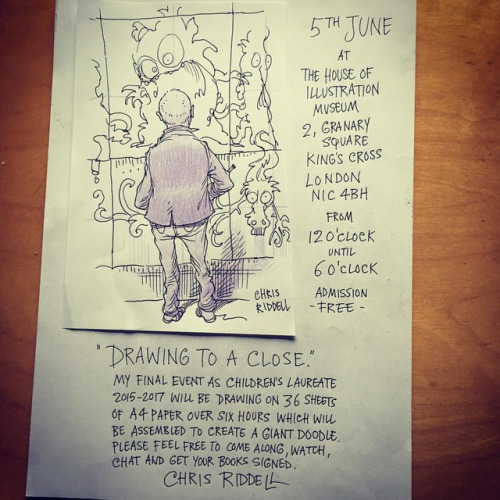 5TH JUNE
AT
THE HOUSE OF
ILLUSTRATION
MUSEUM
2, GRANARY
SQUARE
KING'S CROSS
LONDON
N1C 4BH
FROM
12 O'CLOCK
UNTIL
6 O'CLOCK
ADMISSION
- FREE -
CHRIS
RIDDELL
"DRAWING TO A CLOSE."
MY FINAL EVENT AS CHILDREN'S LAUREATE
2015-2017 WILL BE DRAWING ON 36 SHEETS
OF A4 PAPER OVER SIX HOURS WHICH WILL
BE ASSEMBLED TO CREATE A GIANT DOODLE.
PLEASE FEEL FREE TO COME ALONG, WATCH,
CHAT AND GET YOUR BOOKS SIGNED.
CHRIS RIDDELL